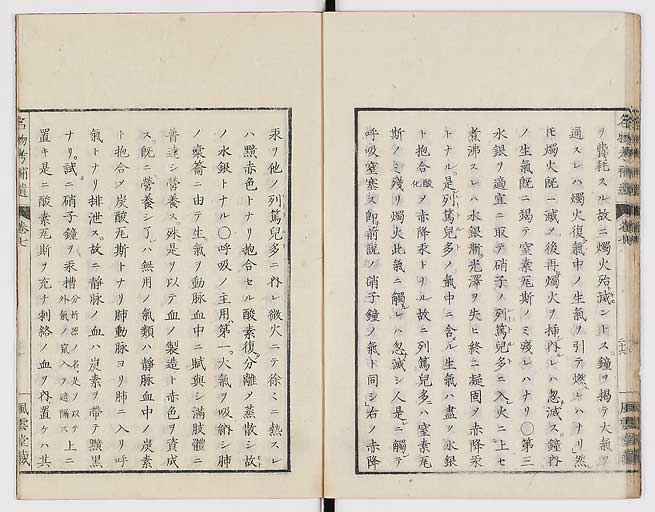 ヲ費耗スル故ニ燭火殆滅ントス鐘ヲ揭テ大氣ヲ
通スレハ燭火復氣中ノ生氣ヲ引テ燃レハナリ然
𪜈燭火既ニ滅ノ後再燭火ヲ挿ルレハ忽滅ス鐘內
ノ生氣既ニ竭テ窒素瓦斯ノミ殘レハナリ〇第三
水銀ヲ適宜ニ取テ硝子ノ列篤兒多ニ入火ニ上セ
煮沸スレハ水銀漸光澤ヲ失ヒ終ニ凝固ノ赤降汞
トナル是列篤兒多ノ氣中ニ含ル生氣ハ盡ク水銀
ト抱合酸化ノ赤降汞トナル故ニ列篤兒多ハ窒素瓦
斯ノミ殘リ燭火此氣ニ觸レハ忽滅シ人是ニ觸テ
呼吸窒塞ス即前説ノ硝子鐘ノ氣ト同シ右ノ赤降
汞ヲ他ノ列篤兒多ニ內レ微火ニテ徐々ニ熱スレ
ハ黯赤色トナリ抱合セル酸素復分離ノ蒸散シ故
ノ水銀トナル〇呼吸ノ主用第一大氣ヲ吸納シ肺
ノ稟蘥ニ由テ生氣ヲ動脉血中ニ賦與シ滿肢體ニ
普達シ營養ス殊是ヲ以テ血ノ製造ト赤色ヲ資成
ス既ニ營養シ了レハ無用ノ氣類ハ靜脉血中ノ炭素
ト抱合ノ炭酸瓦斯トナリ肺動脉ヨリ肺ニ入リ呼
氣トナリ排泄ス故ニ靜脉ノ血ハ炭素ヲ帶テ黯黑
ナリ試ニ硝子鐘ヲ汞槽分析器ノ名是ヲ以テ外氣ノ竄入ヲ遮隔ス上ニ
置キ是ニ酸素瓦斯ヲ充テ刺絡ノ血ヲ內置ケハ其
名物考補遺
卷七
風雲堂藏